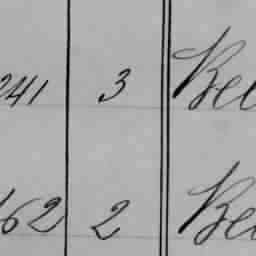 241 3 Bel
162 2 Bel